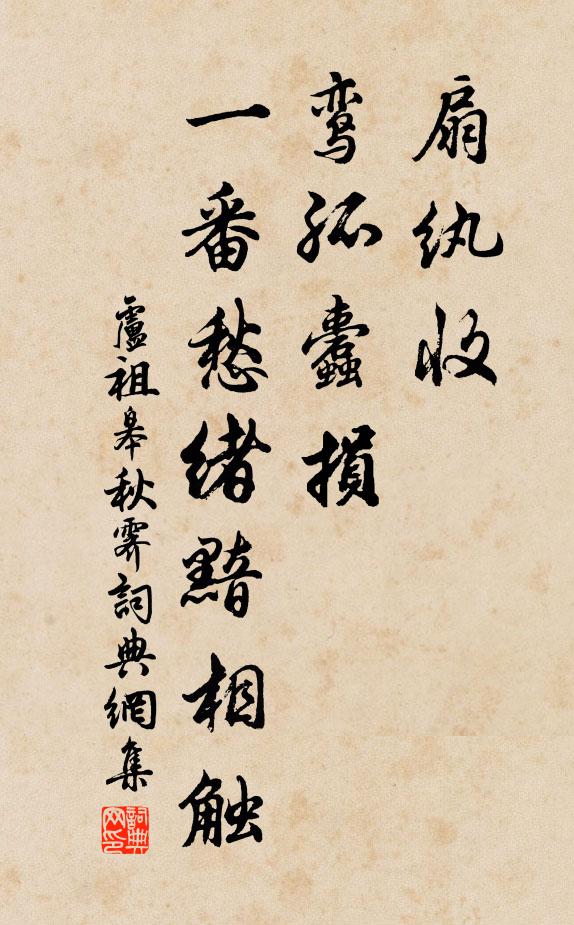 扇纨收
鸾孤蠹損
一番愁绪黯相触
盧祖皋秋霁詞典網集
詞典网印